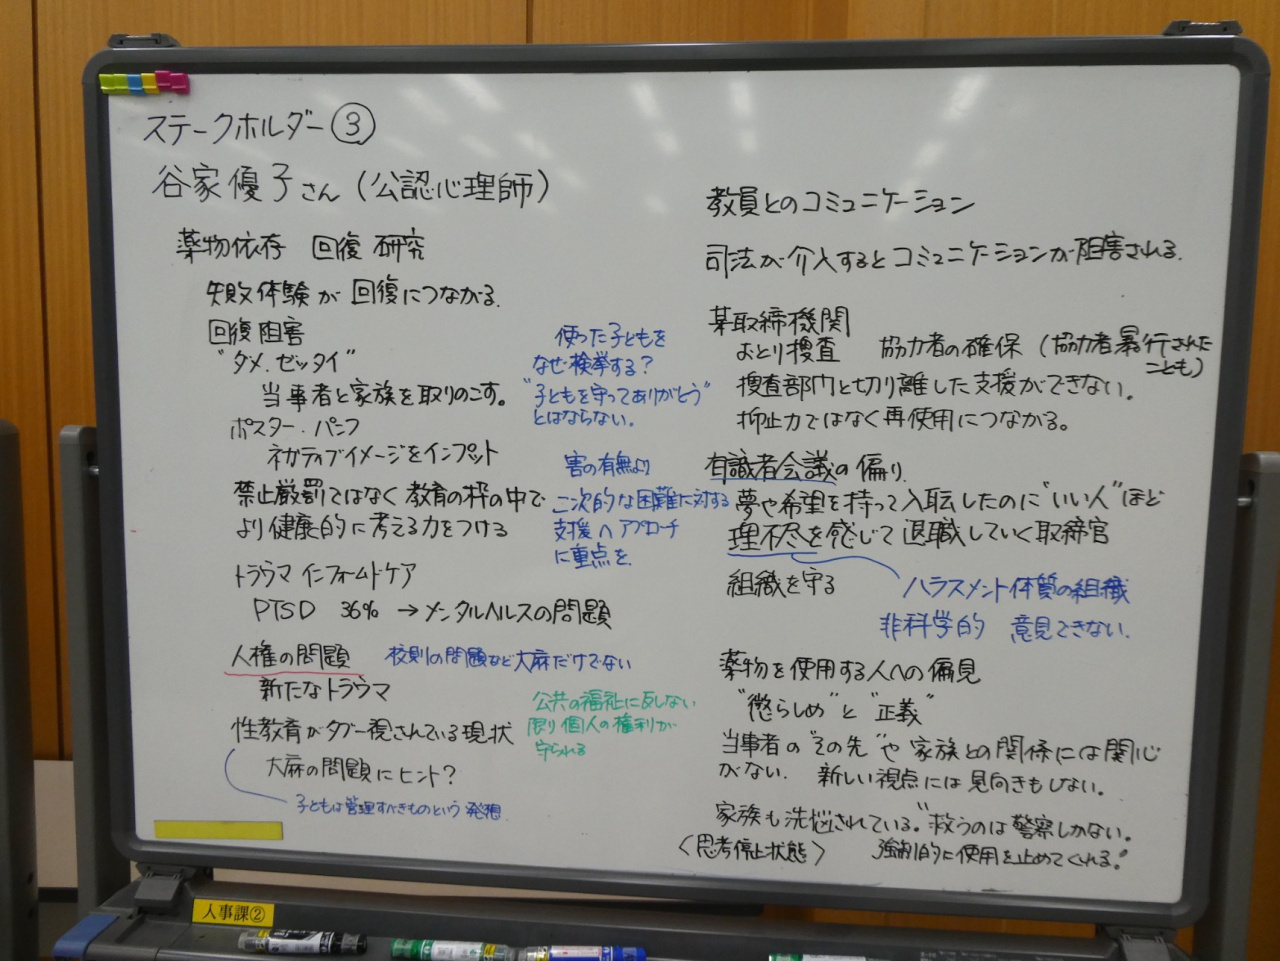 ステークホルダー③
谷家優子さん（公認心理師）
薬物依存 回復 研究
失敗体験が回復につながる.
回復阻害
"ダメ.ゼッタイ"
当事者と家族を取りのこす。
ポスター.パンフ
ネガティブイメージをインプット
禁止厳罰ではなく教育の枠の中で
より健康的に考える力をつける
トラウマインフォームドケア
PTSD 36% →メンタルヘルスの問題
人権の問題
校則の問題など大麻だけでない
新たなトラウマ
性教育がタブー視されている現状
大麻の問題にヒント?
子どもは管理すべきものという発想
使った子どもを
なぜ検挙する?
"子どもを守ってありがとう"
とはならない.
害の有無より
二次的な困難に対する
支援へアプローチ
に重点を.
公共の福祉に反しない
限り個人の権利が
守られる
教員とのコミュニケーション
司法が介入するとコミュニケーションが阻害される.
某取締機関
おとり捜査 協力者の確保（協力者暴行された
こども）
捜査部門と切り離した支援ができない.
抑止力ではなく再使用につながる。
有識者会議の偏り
夢や希望を持って入転したのに"いい人"ほど
理不尽を感じて退職していく取締官
組織を守る
ハラスメント体質の組織
非科学的 意見できない.
薬物を使用する人への偏見
"懲らしめ"と"正義"
当事者の"その先"や家族との関係には関心
がない. 新しい視点には見向きもしない。
家族も洗脳されている."救うのは警察しかない.
〈思考停止状態〉 強制的に使用を止めてくれる!
人事課②